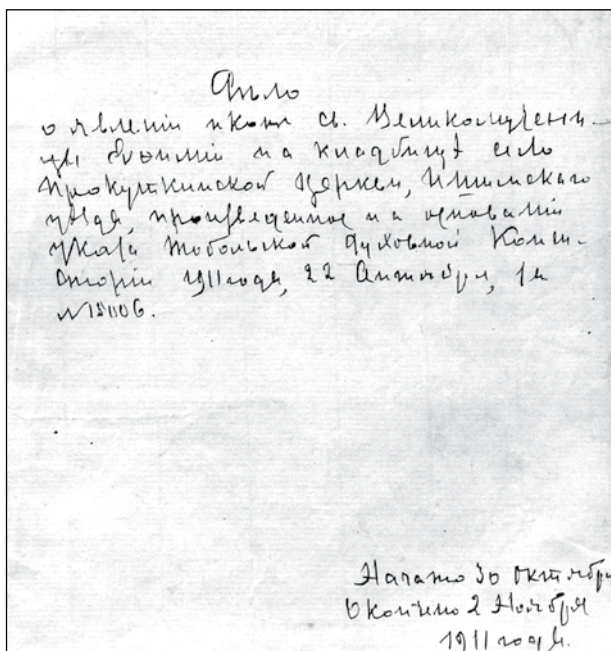 Дѣло
о явленіи иконы св. Великомучени-
цы Евѳиміи на кладбищѣ села
Прокуткинской Церкви, Ишимскаго
уѣзда, произведенное на основаніи
указа Тобольской Духовной Конси-
сторіи 1911 года, 22 Сентября, за
№ 18006.
Начато 30 Октября
Окончено 2 Ноября
1911 года.